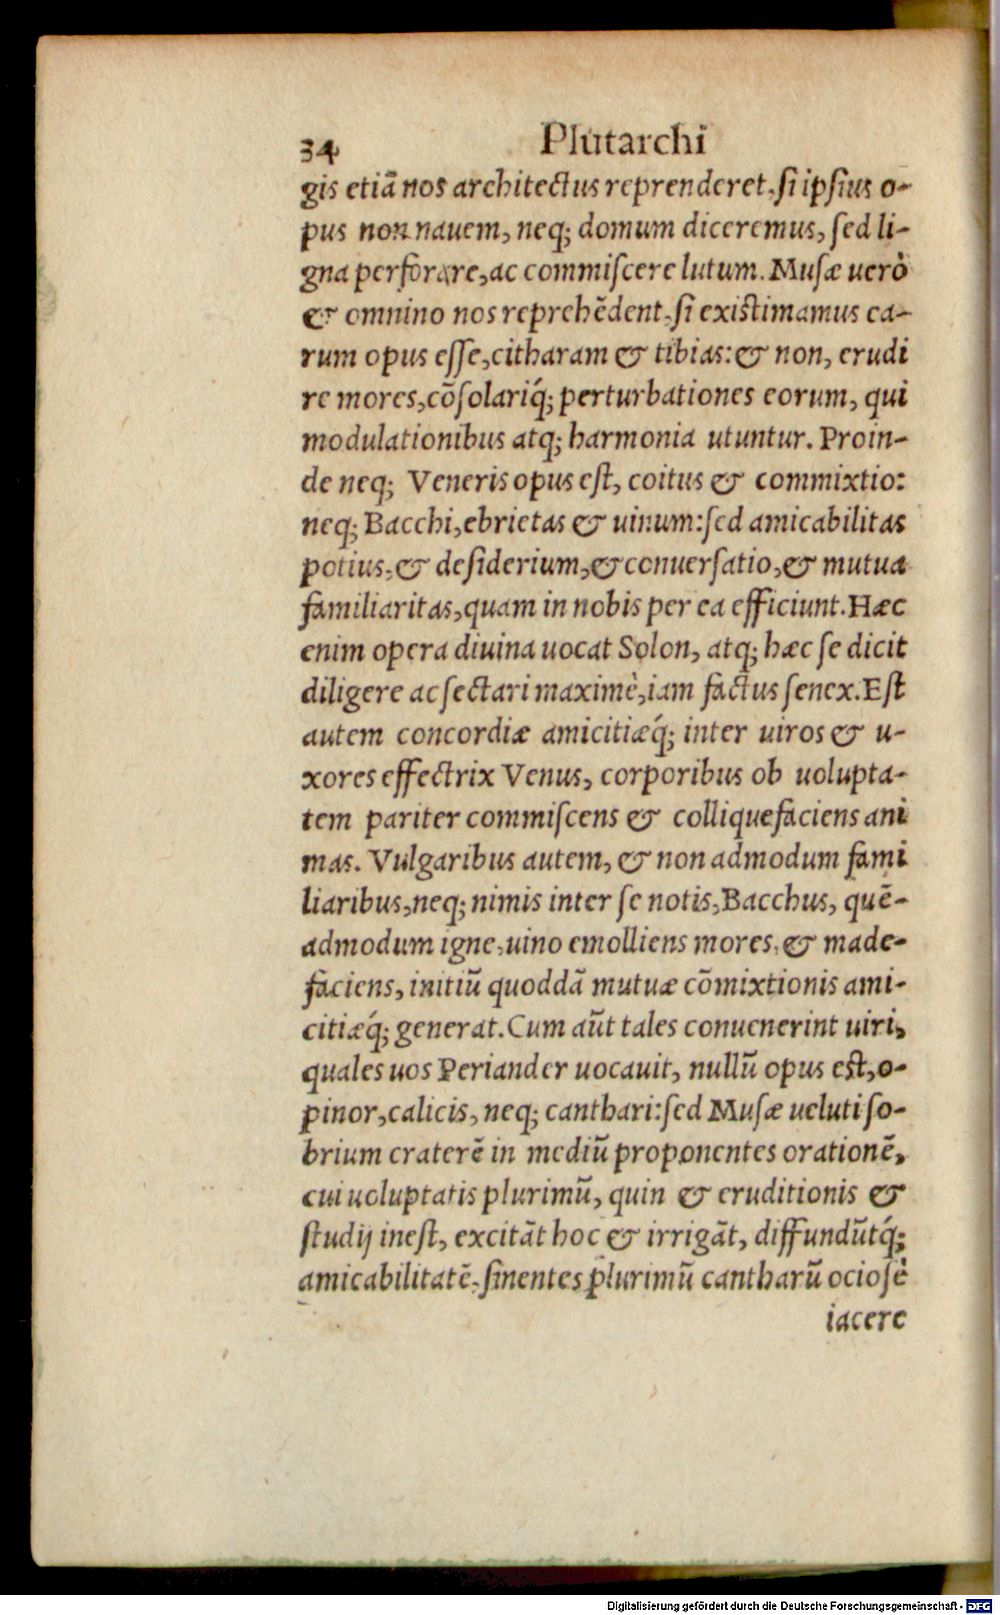 34 Plutarchi
gis etiā nos architectus reprenderet, si ipsius o-
pus non nauem, neq; domum diceremus, sed li-
gna perforare, ac commiscere lutum. Musæ uerò
& omnino nos reprehēdent, si existimamus ea-
rum opus esse, citharam & tibias: & non, erudi
re mores, cōsolariq́; perturbationes eorum, qui
modulationibus atq; harmonia utuntur. Proin-
de neq; Veneris opus est, coitus & commixtio:
neq; Bacchi, ebrietas & uinum: sed amicabilitas
potius, & desiderium, & conuersatio, & mutua
familiaritas, quam in nobis per ea efficiunt. Hæc
enim opera diuina uocat Solon, atq; hæc se dicit
diligere ac sectari maximè, iam factus senex. Est
autem concordiæ amicitiæq́; inter uiros & u-
xores effectrix Venus, corporibus ob uolupta-
tem pariter commiscens & colliquefaciens ani
mas. Vulgaribus autem, & non admodum fami
liaribus, neq; nimis inter se notis, Bacchus, quē-
admodum igne, uino emolliens mores, & made-
faciens, initiū quoddā mutuæ cōmixtionis ami-
citiæq́; generat. Cum aūt tales conuenerint uiri,
quales uos Periander uocauit, nullū opus est, o-
pinor, calicis, neq; canthari: sed Musæ ueluti so-
brium craterē in mediū proponentes orationē,
cui uoluptatis plurimū, quin & eruditionis &
studij inest, excitāt hoc & irrigāt, diffundūtq́;
amicabilitatē, sinentes plurimū cantharū ociosè
iacere
Digitalisierung gefördert durch die Deutsche Forschungsgemeinschaft - DFG